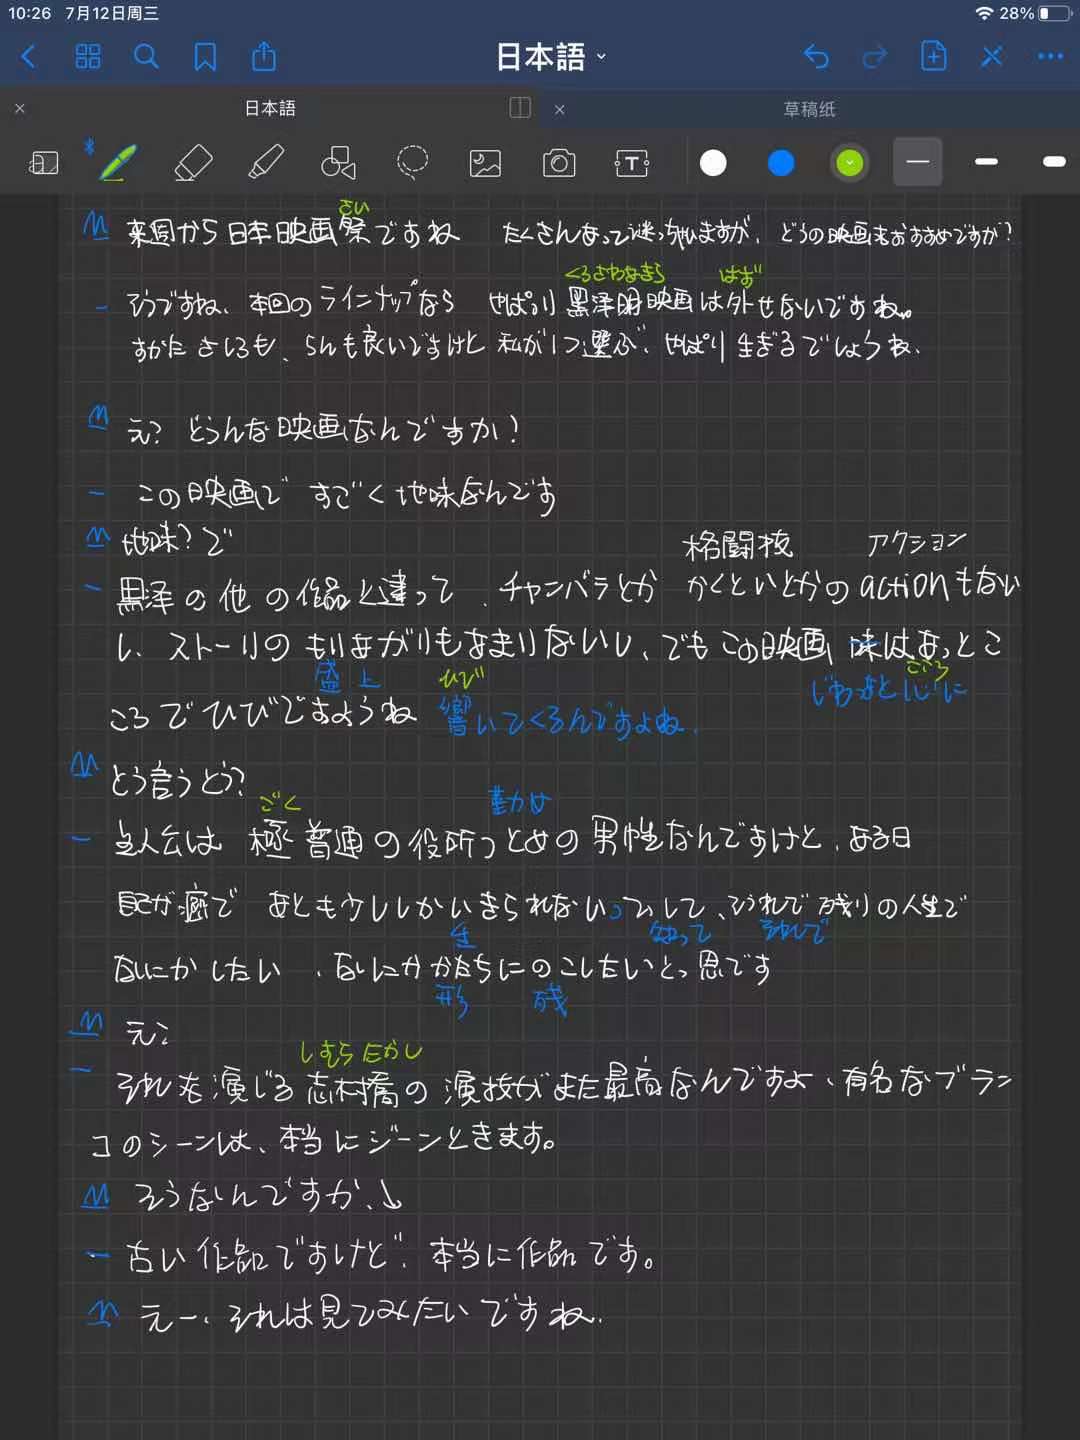 10:26 7月12日周三 28%
日本語
日本語 草稿纸
さい
M 来週から日本映画祭ですね たくさんあって迷っちゃいますが、どうの映画もおすすめですか?
くろさわあきら はず
- そうですね、本回のラインナップなら やぱり黒澤明映画は外せないですね。
すがたさしろも、らんも良いですけど 私が1つ選ぶ、やぱり生きるでしょうね、
M え?どうんな映画なんですか?
- この映画で すごく地味なんです
M 地味?で
格闘技 アクション
- 黒澤の他の作品と違って、チャンバラとか かくといとかのactionもない
し、ストーリのもりあがりもあまりないし、でもこの映画 味はあっとこ
盛 上 ひび じわっと心に こころ
ころでひびですようね 響いてくるんですよね.
M どう言うどう?
ごく 勤め
- 主人公は 極普通の役所つとめの男性なんですけど、ある日
自己が癌で あともう少ししかいきられないっつして、そうれで残りの人生で
生 知って それで
なにかしたい、なにかかたちにのこしたいとっ思です
形 残
M え?
しむら たかし
- それを演じる志村喬の演技がまた最高なんですよ、有名なブラン
コのシーンは、本当にジーンときます。
M そうなんですか、↓
- 古い作品ですけど、本当に作品です。
M えー、それは見てみたいですね.